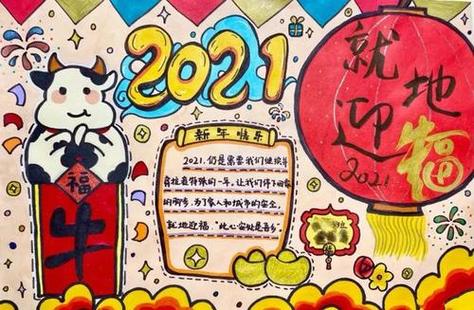 2021
就地
迎福
2021
福
牛
新年快乐
2021,仍是需要我们继续并
肩抗疫特殊的一年,让我们停下回家
的脚步,为了家人和城市的安全,
就地迎福,"此心安处是吾乡"